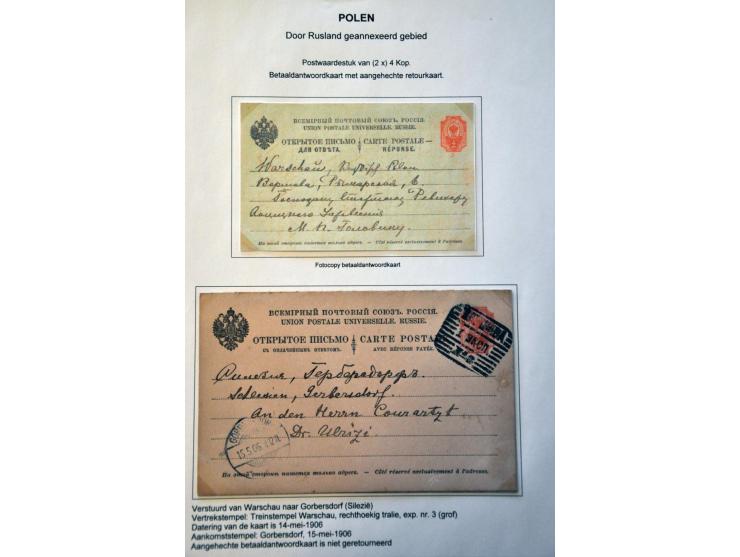 POLEN
Door Rusland geannexeerd gebied
Postwaardestuk van (2 x) 4 Kop.
Betaaldantwoordkaart met aangehechte retourkaart.
ВСЕМІРНЫЙ ПОЧТОВЫЙ СОЮЗЪ. РОССІЯ.
UNION POSTALE UNIVERSELLE. RUSSIE.
ОТКРЫТОЕ ПИСЬМО CARTE POSTALE
ДЛЯ ОТВѢТА. RÉPONSE.
Warschau,
Варшава, Рымарская,
Господину
М. П. Головину.
На этой сторонѣ пишется только адресъ. — Côté réservé exclusivement à l'adresse.
Fotocopy betaaldantwoordkaart
ВСЕМІРНЫЙ ПОЧТОВЫЙ СОЮЗЪ. РОССІЯ.
UNION POSTALE UNIVERSELLE. RUSSIE.
ОТКРЫТОЕ ПИСЬМО CARTE POSTALE
СЪ ОПЛАЧЕННЫМЪ ОТВѢТОМЪ. AVEC RÉPONSE PAYÉE.
Силезія, Герберсдорфъ.
Schlesien, Gerbersdorf.
An den Herrn Courartzt
Dr.
15.5.06
На этой сторонѣ пишется только адресъ. — Côté réservé exclusivement à l'adresse.
Verstuurd van Warschau naar Gorbersdorf (Silezië)
Vertrekstempel: Treinstempel Warschau, rechthoekig tralie, exp. nr. 3 (grof)
Datering van de kaart is 14-mei-1906
Aankomststempel: Gorbersdorf, 15-mei-1906
Aangehechte betaaldantwoordkaart is niet geretourneerd